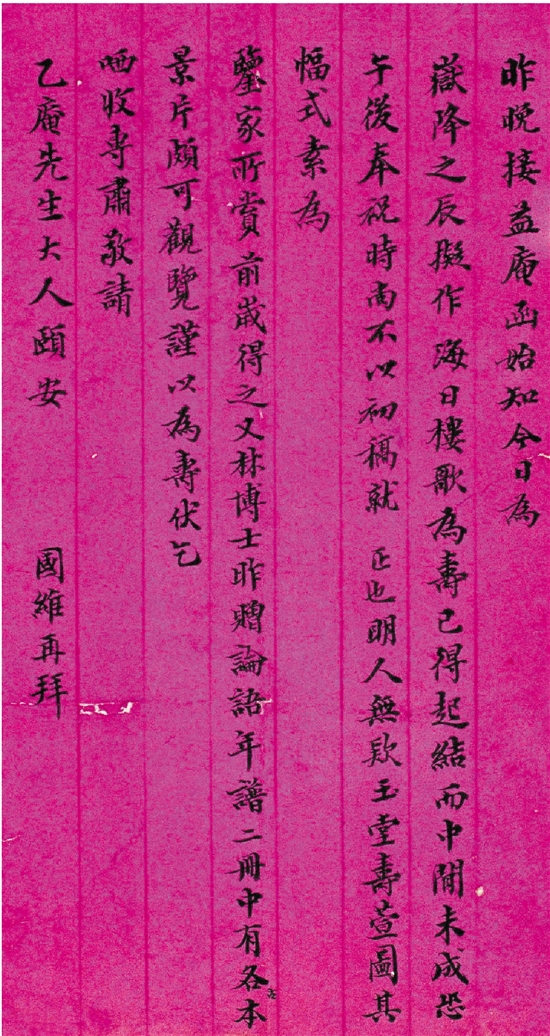 昨晚接益庵函始知今日為
嶽降之辰擬作海日樓歌為壽已得起結而中間未成恐
午後奉祝時尚不以初稿就 正也明人無款玉堂壽萱圖其
幅式素為
鑒家所賞前歲得之又林博士昨贈論語年譜二冊中有各本
景片頗可觀覽謹以為壽伏乞
哂收專肅敬請
乙庵先生大人頤安 國維再拜